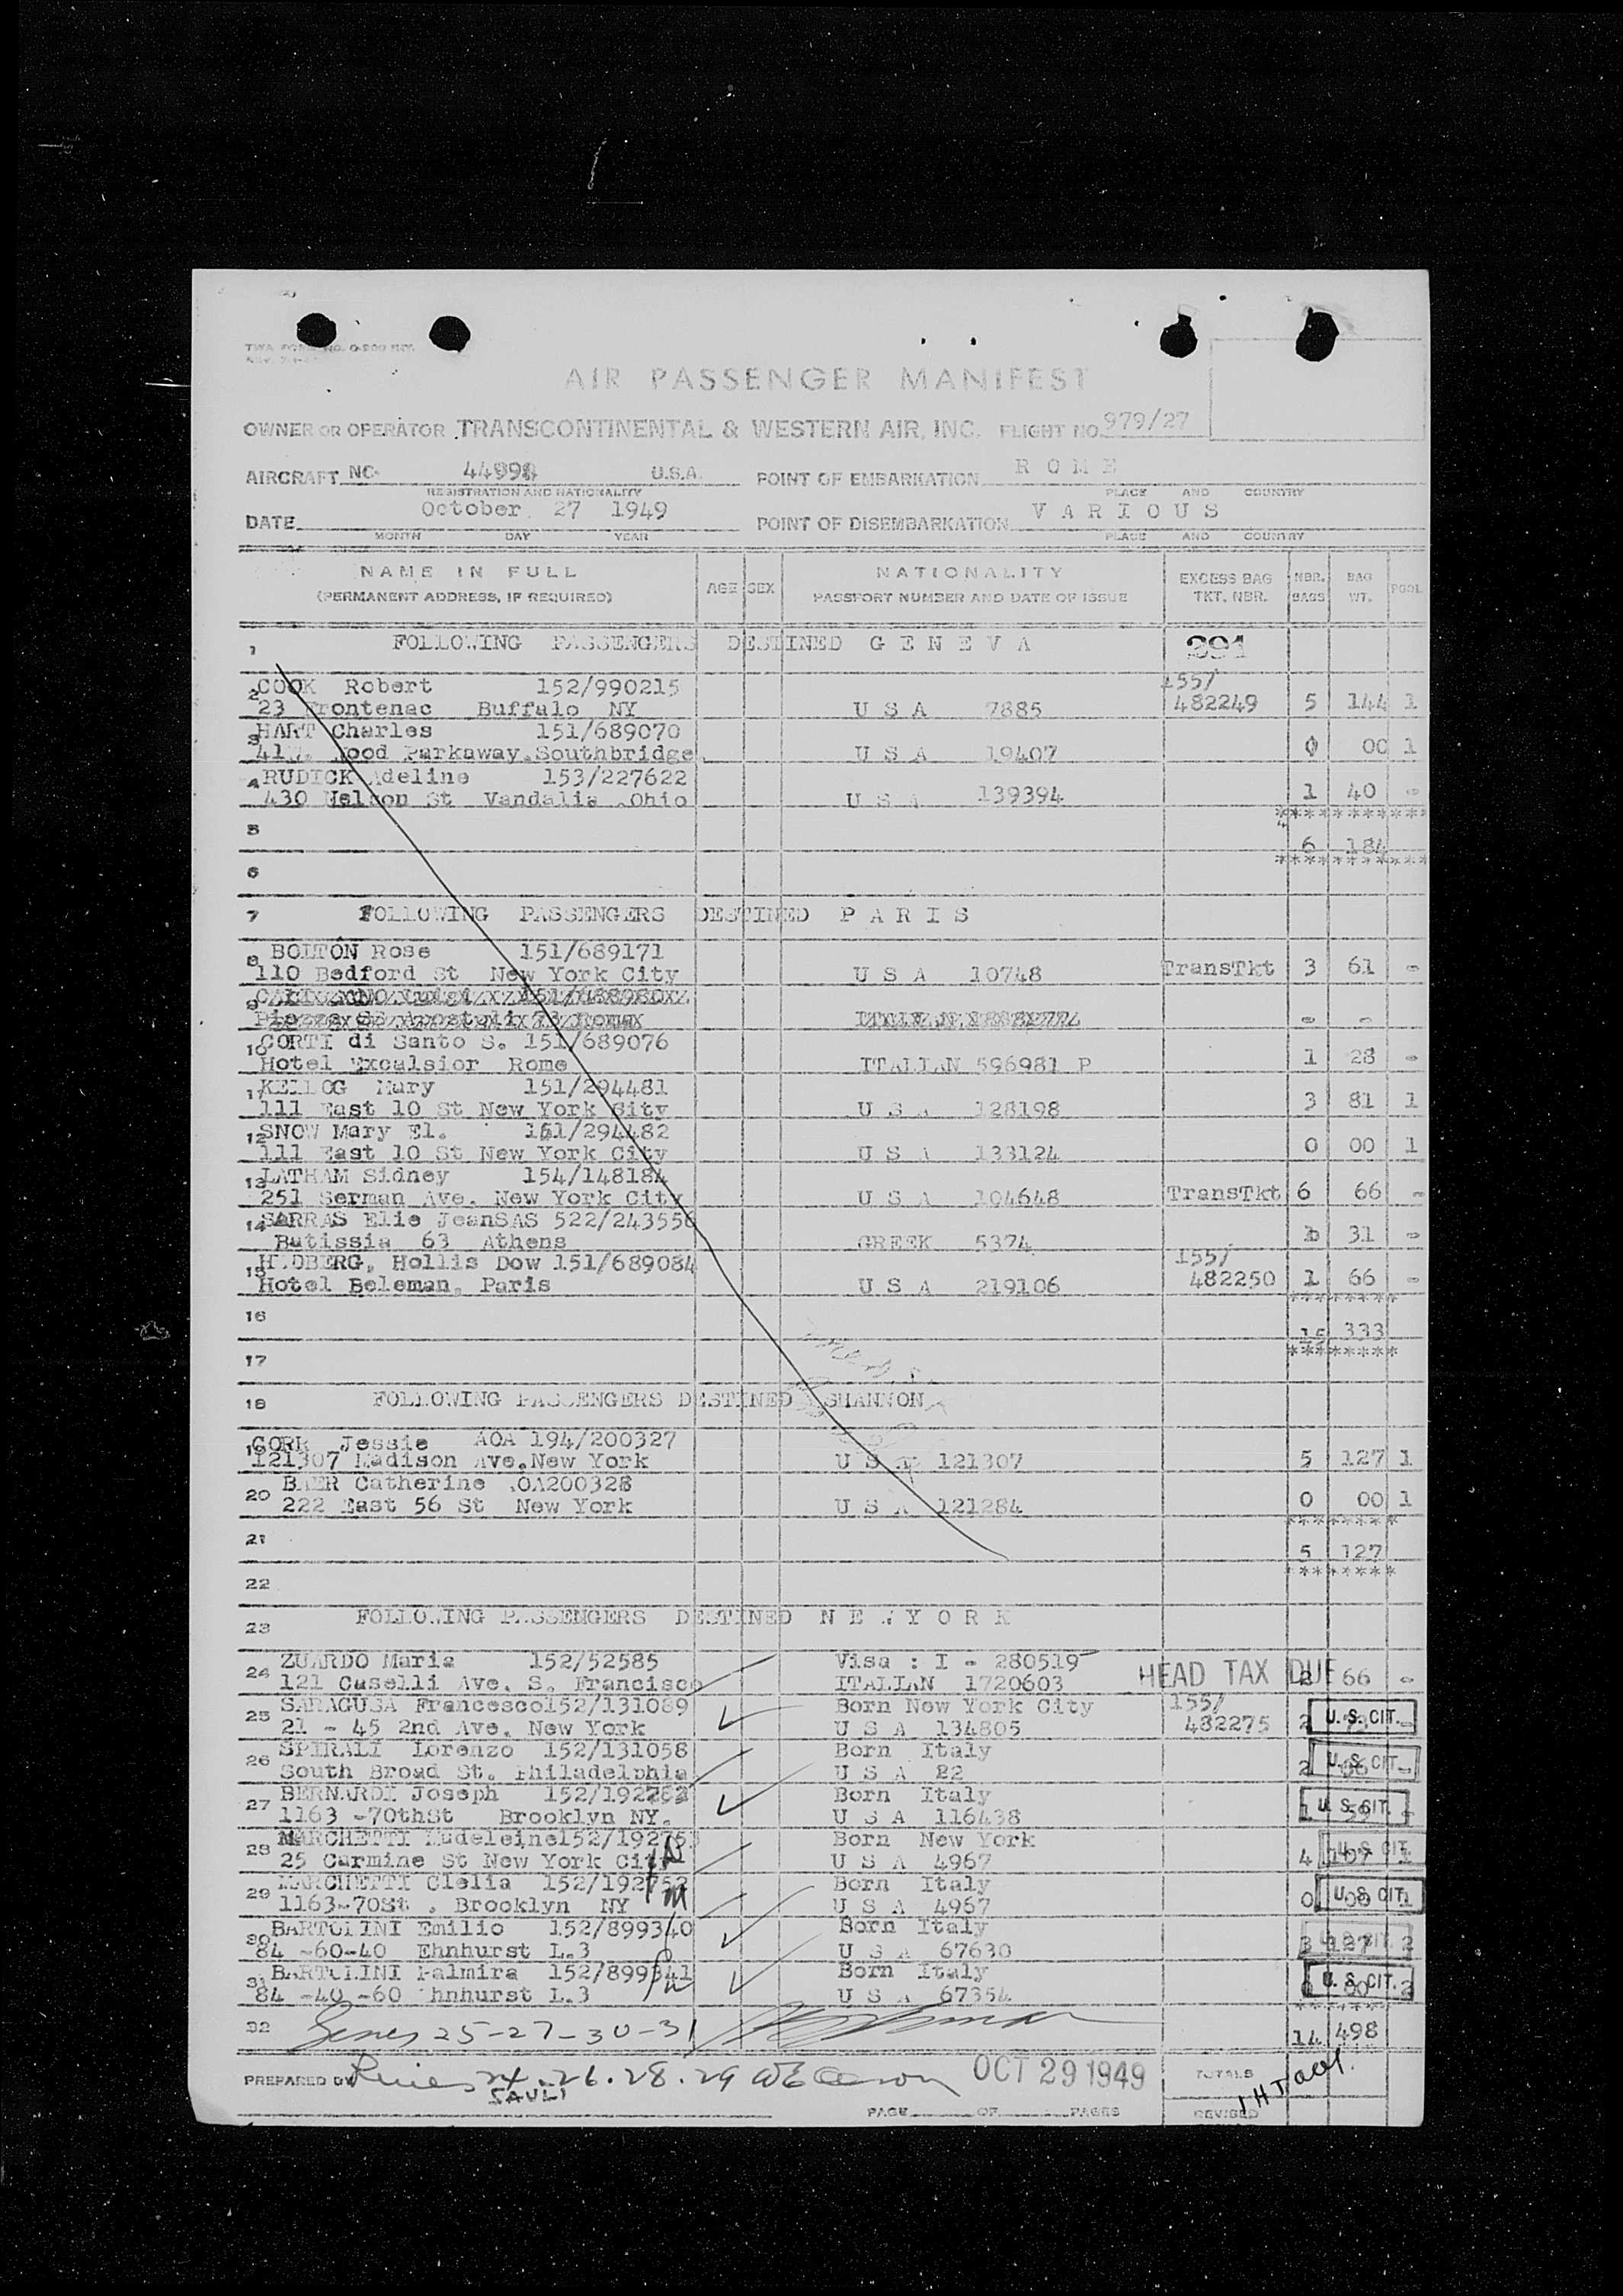 AIR PASSENGER MANIFEST
OWNER OR OPERATOR TRANSCONTINENTAL & WESTERN AIR, INC. FLIGHT NO. 979/27
AIRCRAFT NO. U.S.A. POINT OF EMBARKATION R O M E
REGISTRATION AND NATIONALITY PLACE AND COUNTRY
DATE October 27 1949 POINT OF DISEMBARKATION V A R I O U S
MONTH DAY YEAR PLACE AND COUNTRY
NAME IN FULL AGE SEX NATIONALITY EXCESS BAG NBR. BAG POOL
(PERMANENT ADDRESS, IF REQUIRED) PASSPORT NUMBER AND DATE OF ISSUE TKT. NBR. BAGS WT.
1 FOLLOWING PASSENGERS DESTINED G E N E V A 391
2 COOK Robert 152/990215 155/
23 Frontenac Buffalo NY U S A 7885 482249 5 144 1
3 HART Charles 151/689070
Parkaway.Southbridge U S A 19407 0 00 1
4 RUDICK Adeline 153/227622
430 St Vandalia .Ohio U S A 139394 1 40 -
5
6 184
6
7 FOLLOWING PASSENGERS DESTINED P A R I S
8 BOLTON Rose 151/689171
110 Bedford St New York City U S A 10748 TransTkt 3 61 -
9
- -
10 CORTI di Santo S. 151/689076
Hotel Excalsior Rome ITALIAN 596981 P 1 28 -
11 KELLOG Mary 151/294481
111 East 10 St New York City U S A 128198 3 81 1
12 SNOW Mary El. 151/294482
111 East 10 St New York City U S A 133124 0 00 1
13 LATHAM Sidney 154/148184
251 Serman Ave. New York City U S A 104648 TransTkt 6 66 -
14 SARRAS Elie JeanSAS 522/243556
Batissia 63 Athens GREEK 5374 31 -
15 Hollis Dow 151/689084 155/
Hotel Beleman. Paris U S A 219106 482250 1 66 -
16
15 333
17
18 FOLLOWING PASSENGERS DESTINED SHANNON
19 Jessie AOA 194/200327
121307 Madison Ave.New York U S A 121307 5 127 1
20 BAER Catherine AOA200328
222 East 56 St New York U S A 121284 0 00 1
21
5 127
22
23 FOLLOWING PASSENGERS DESTINED N E W Y O R K
24 ZUARDO Maria 152/52585 Visa : I - 280519
121 Caselli Ave. S. Francisco ITALIAN 1720603 HEAD TAX DUE 2 66 -
25 SARAGUSA Francesco152/131089 Born New York City 155/
21 - 45 2nd Ave. New York U S A 134805 482275 2 U.S. CIT.
26 SPIRALI Lorenzo 152/131058 Born Italy
South Broad St. Philadelphia U S A 22 2 U.S. CIT.
27 BERNARDI Joseph Born Italy
1163 -70thSt Brooklyn NY. U S A 116438 1 U.S. CIT.
28 MARCHETTI Madeleine152/192753 Born New York
25 Carmine St New York City U S A 4967 4 107 U.S. CIT.
29 MARCHETTI Clelia 152/192752 Born Italy
1163-70St . Brooklyn NY U S A 4967 0 00 U.S. CIT.
30 BARTOLINI Emilio 152/899340 Born Italy
84 -60-40 Ehnhurst L.3 U S A 67630 3 127 U.S. CIT. 2
31 BARTOLINI Palmira 152/899341 Born Italy
84 -40 -60 Ehnhurst L.3 U S A 67354 U.S. CIT. 2
32 25-27-30-31 14 498
PREPARED BY 24.26.28.29 OCT 29 1949 TOTALS
SAULI
PAGE OF PAGES REVISED